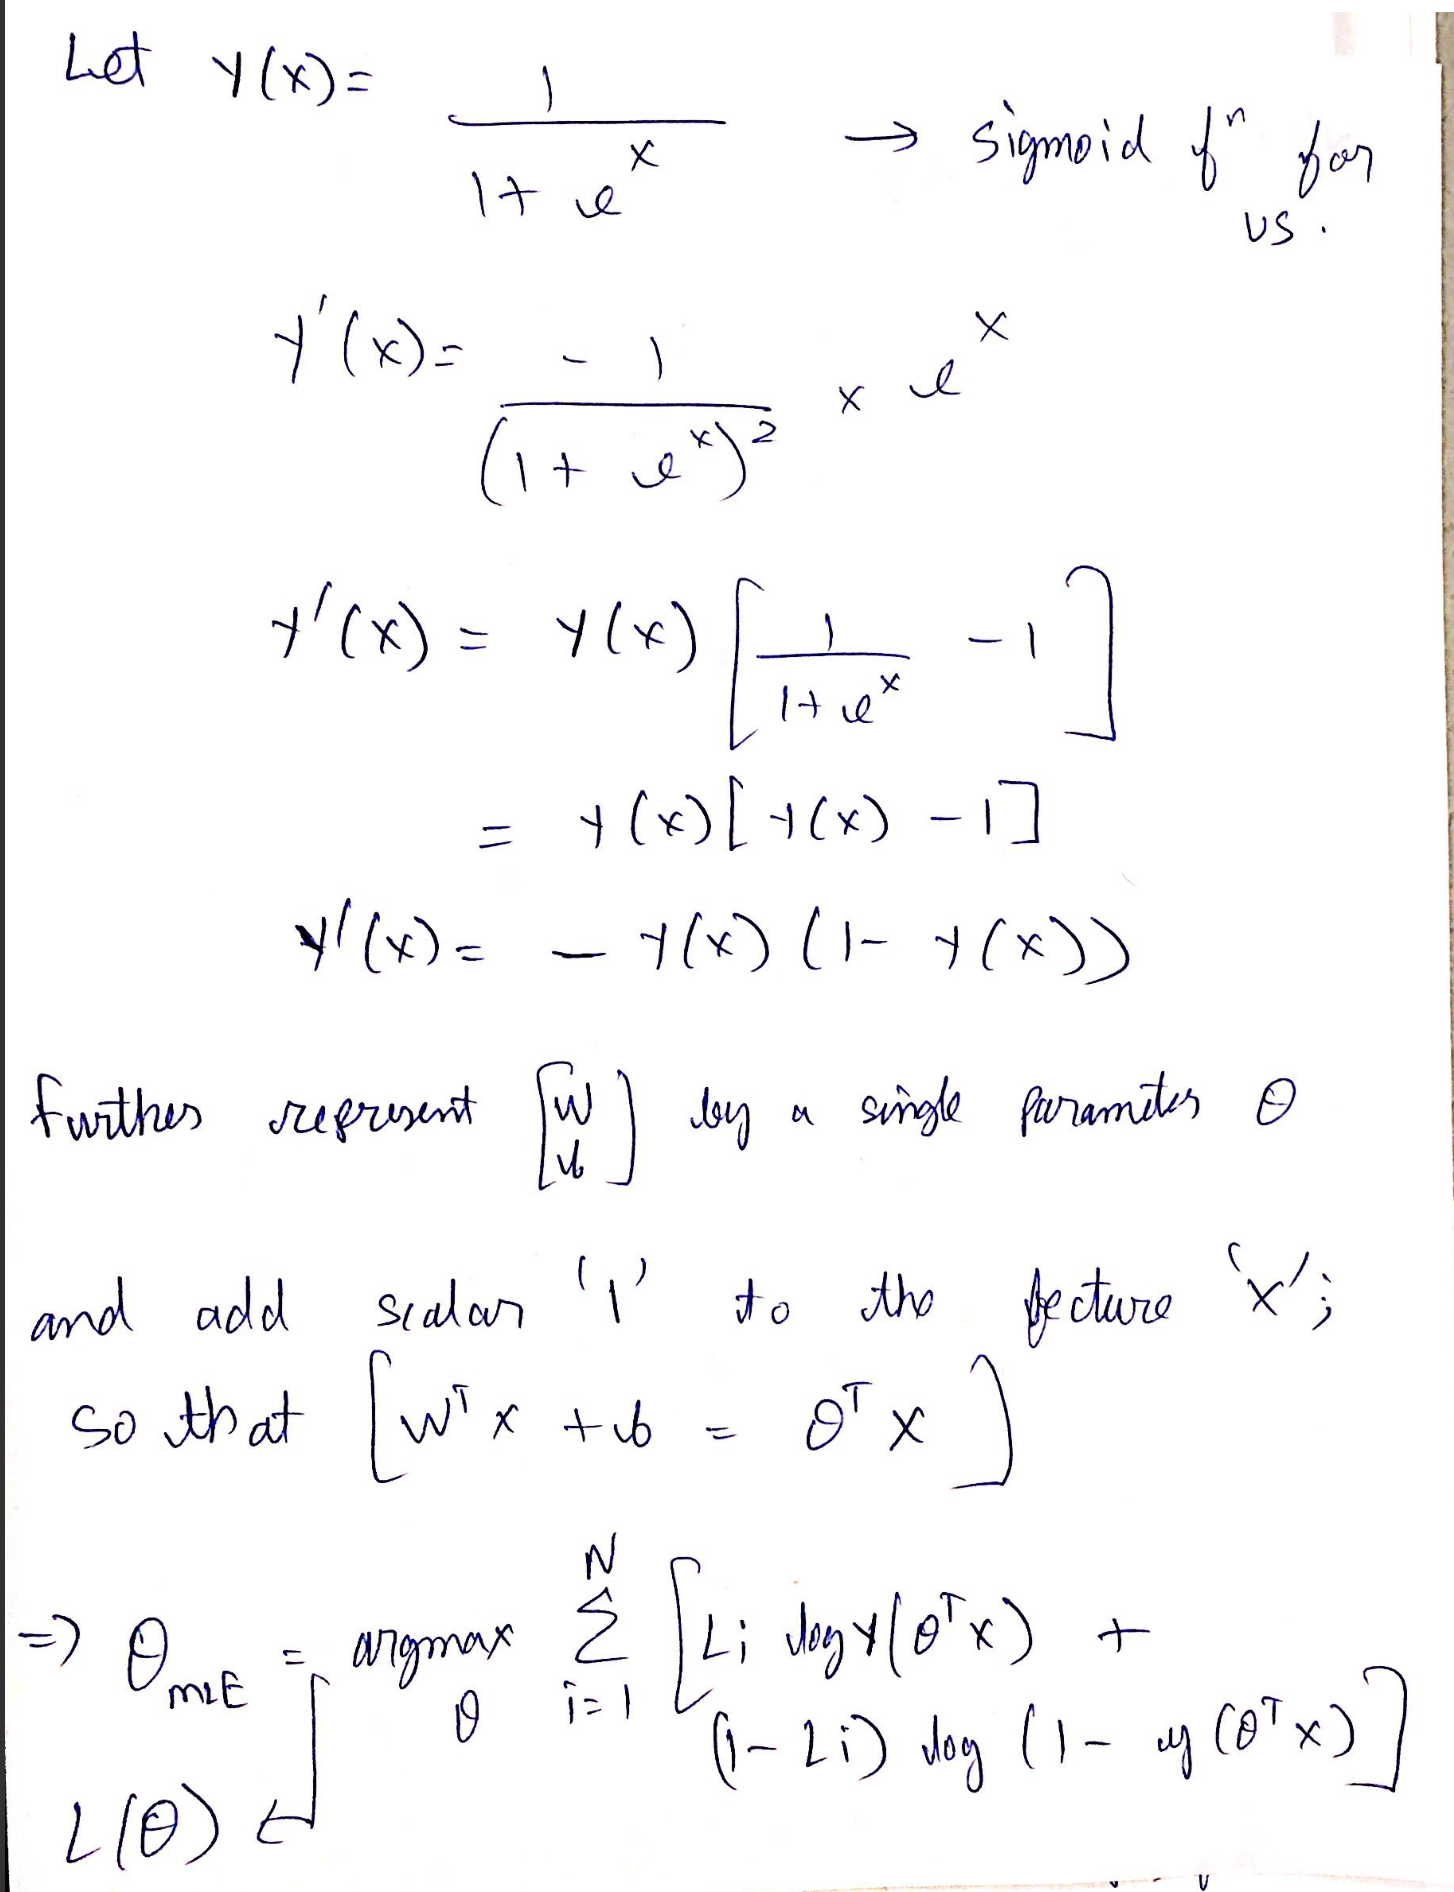 Let y(x) = 1 / (1 + e^x) → sigmoid fⁿ for us.
y'(x) = -1 / (1 + e^x)^2 × e^x
y'(x) = y(x) [ 1 / (1 + e^x) - 1 ]
= y(x) [ y(x) - 1 ]
y'(x) = - y(x) (1 - y(x))
further represent [w b] by a single parameter θ
and add scalar '1' to the fecture 'x';
so that [ w^T x + b = θ^T x ]
=> θ_MLE = argmax_θ Σ_{i=1}^{N} [ Li log y(θ^T x) +
(1 - Li) log (1 - y(θ^T x) ]
L(θ) ←